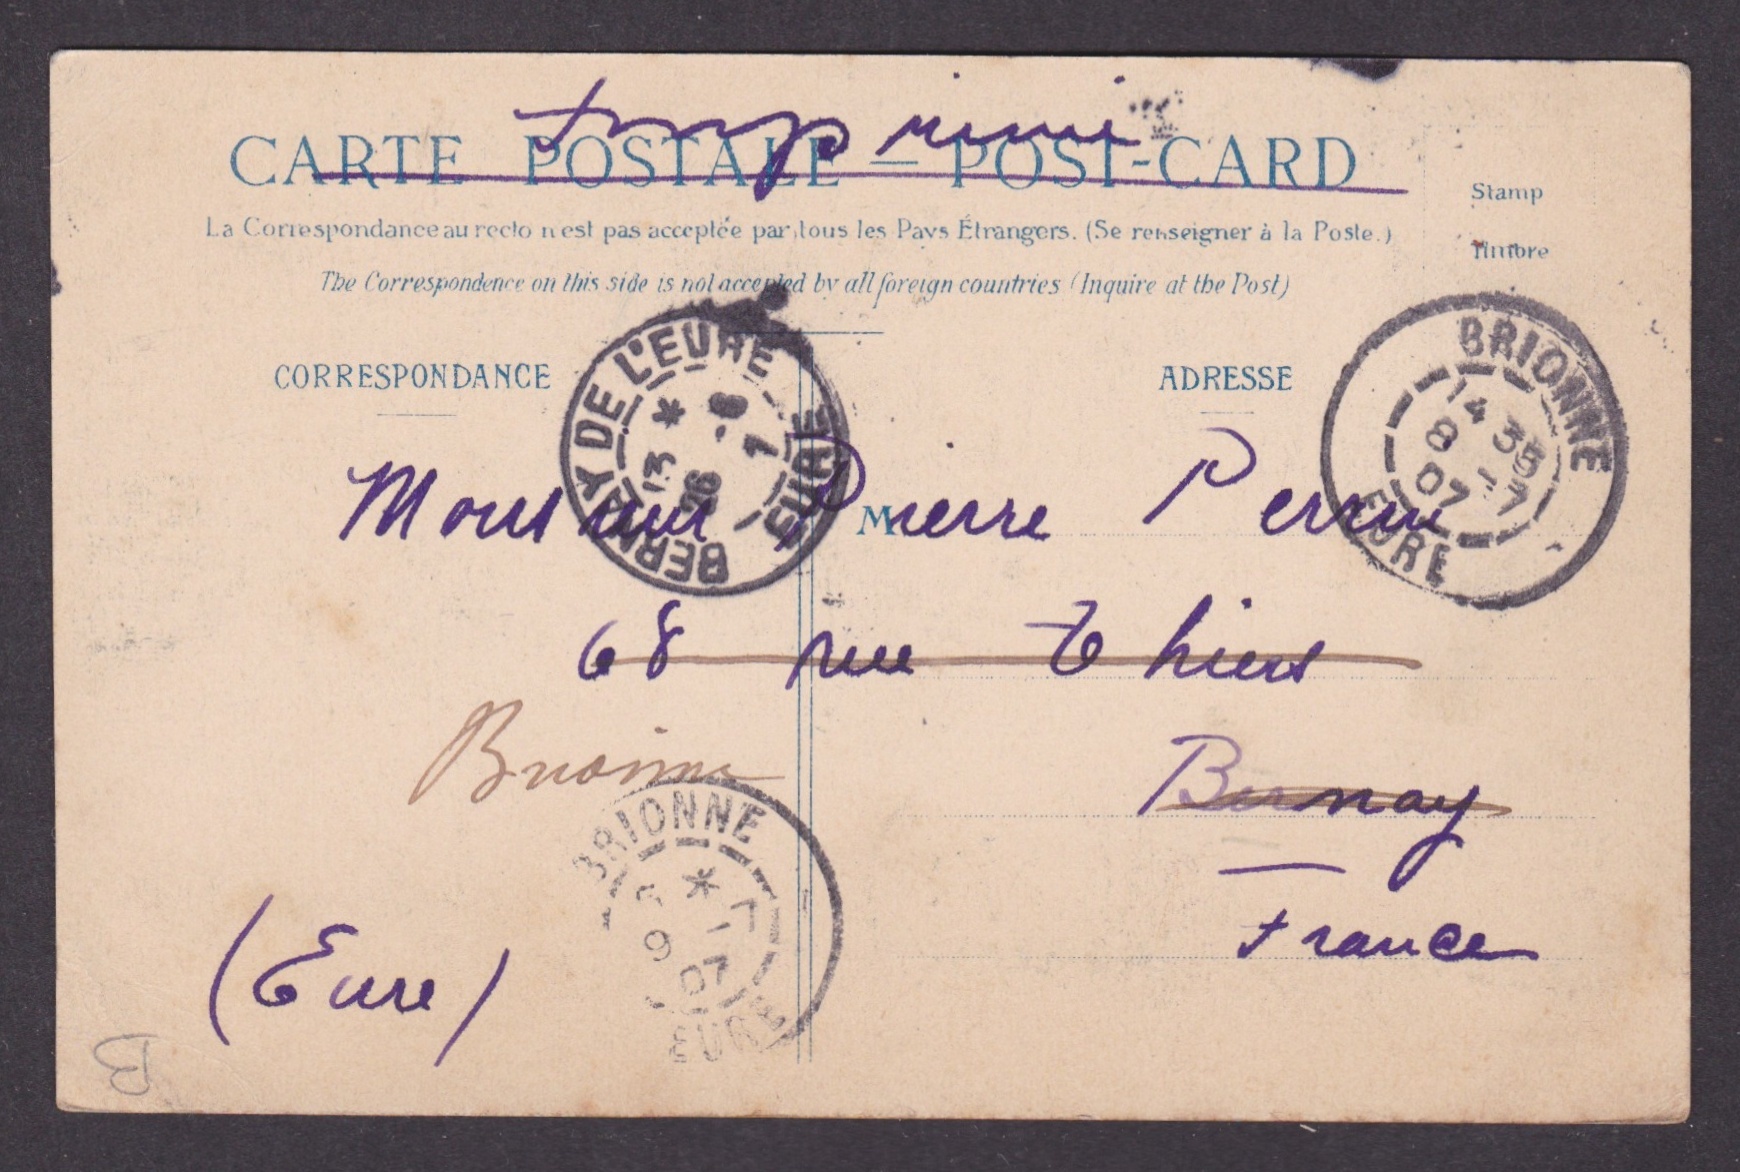 Imprimé
CARTE POSTALE — POST-CARD
Stamp
Timbre
La Correspondance au recto n'est pas acceptée par tous les Pays Étrangers. (Se renseigner à la Poste.)
The Correspondence on this side is not accepted by all foreign countries (Inquire at the Post)
CORRESPONDANCE
ADRESSE
BERNAY DE L'EURE
EURE
13 *
BRIONNE
14 35
8 -7
07
EURE
M
Monsieur Pierre Perrin
68 rue Thiers
Bernay
France
BRIONNE
* 7
9
07
EURE
(Eure)
B